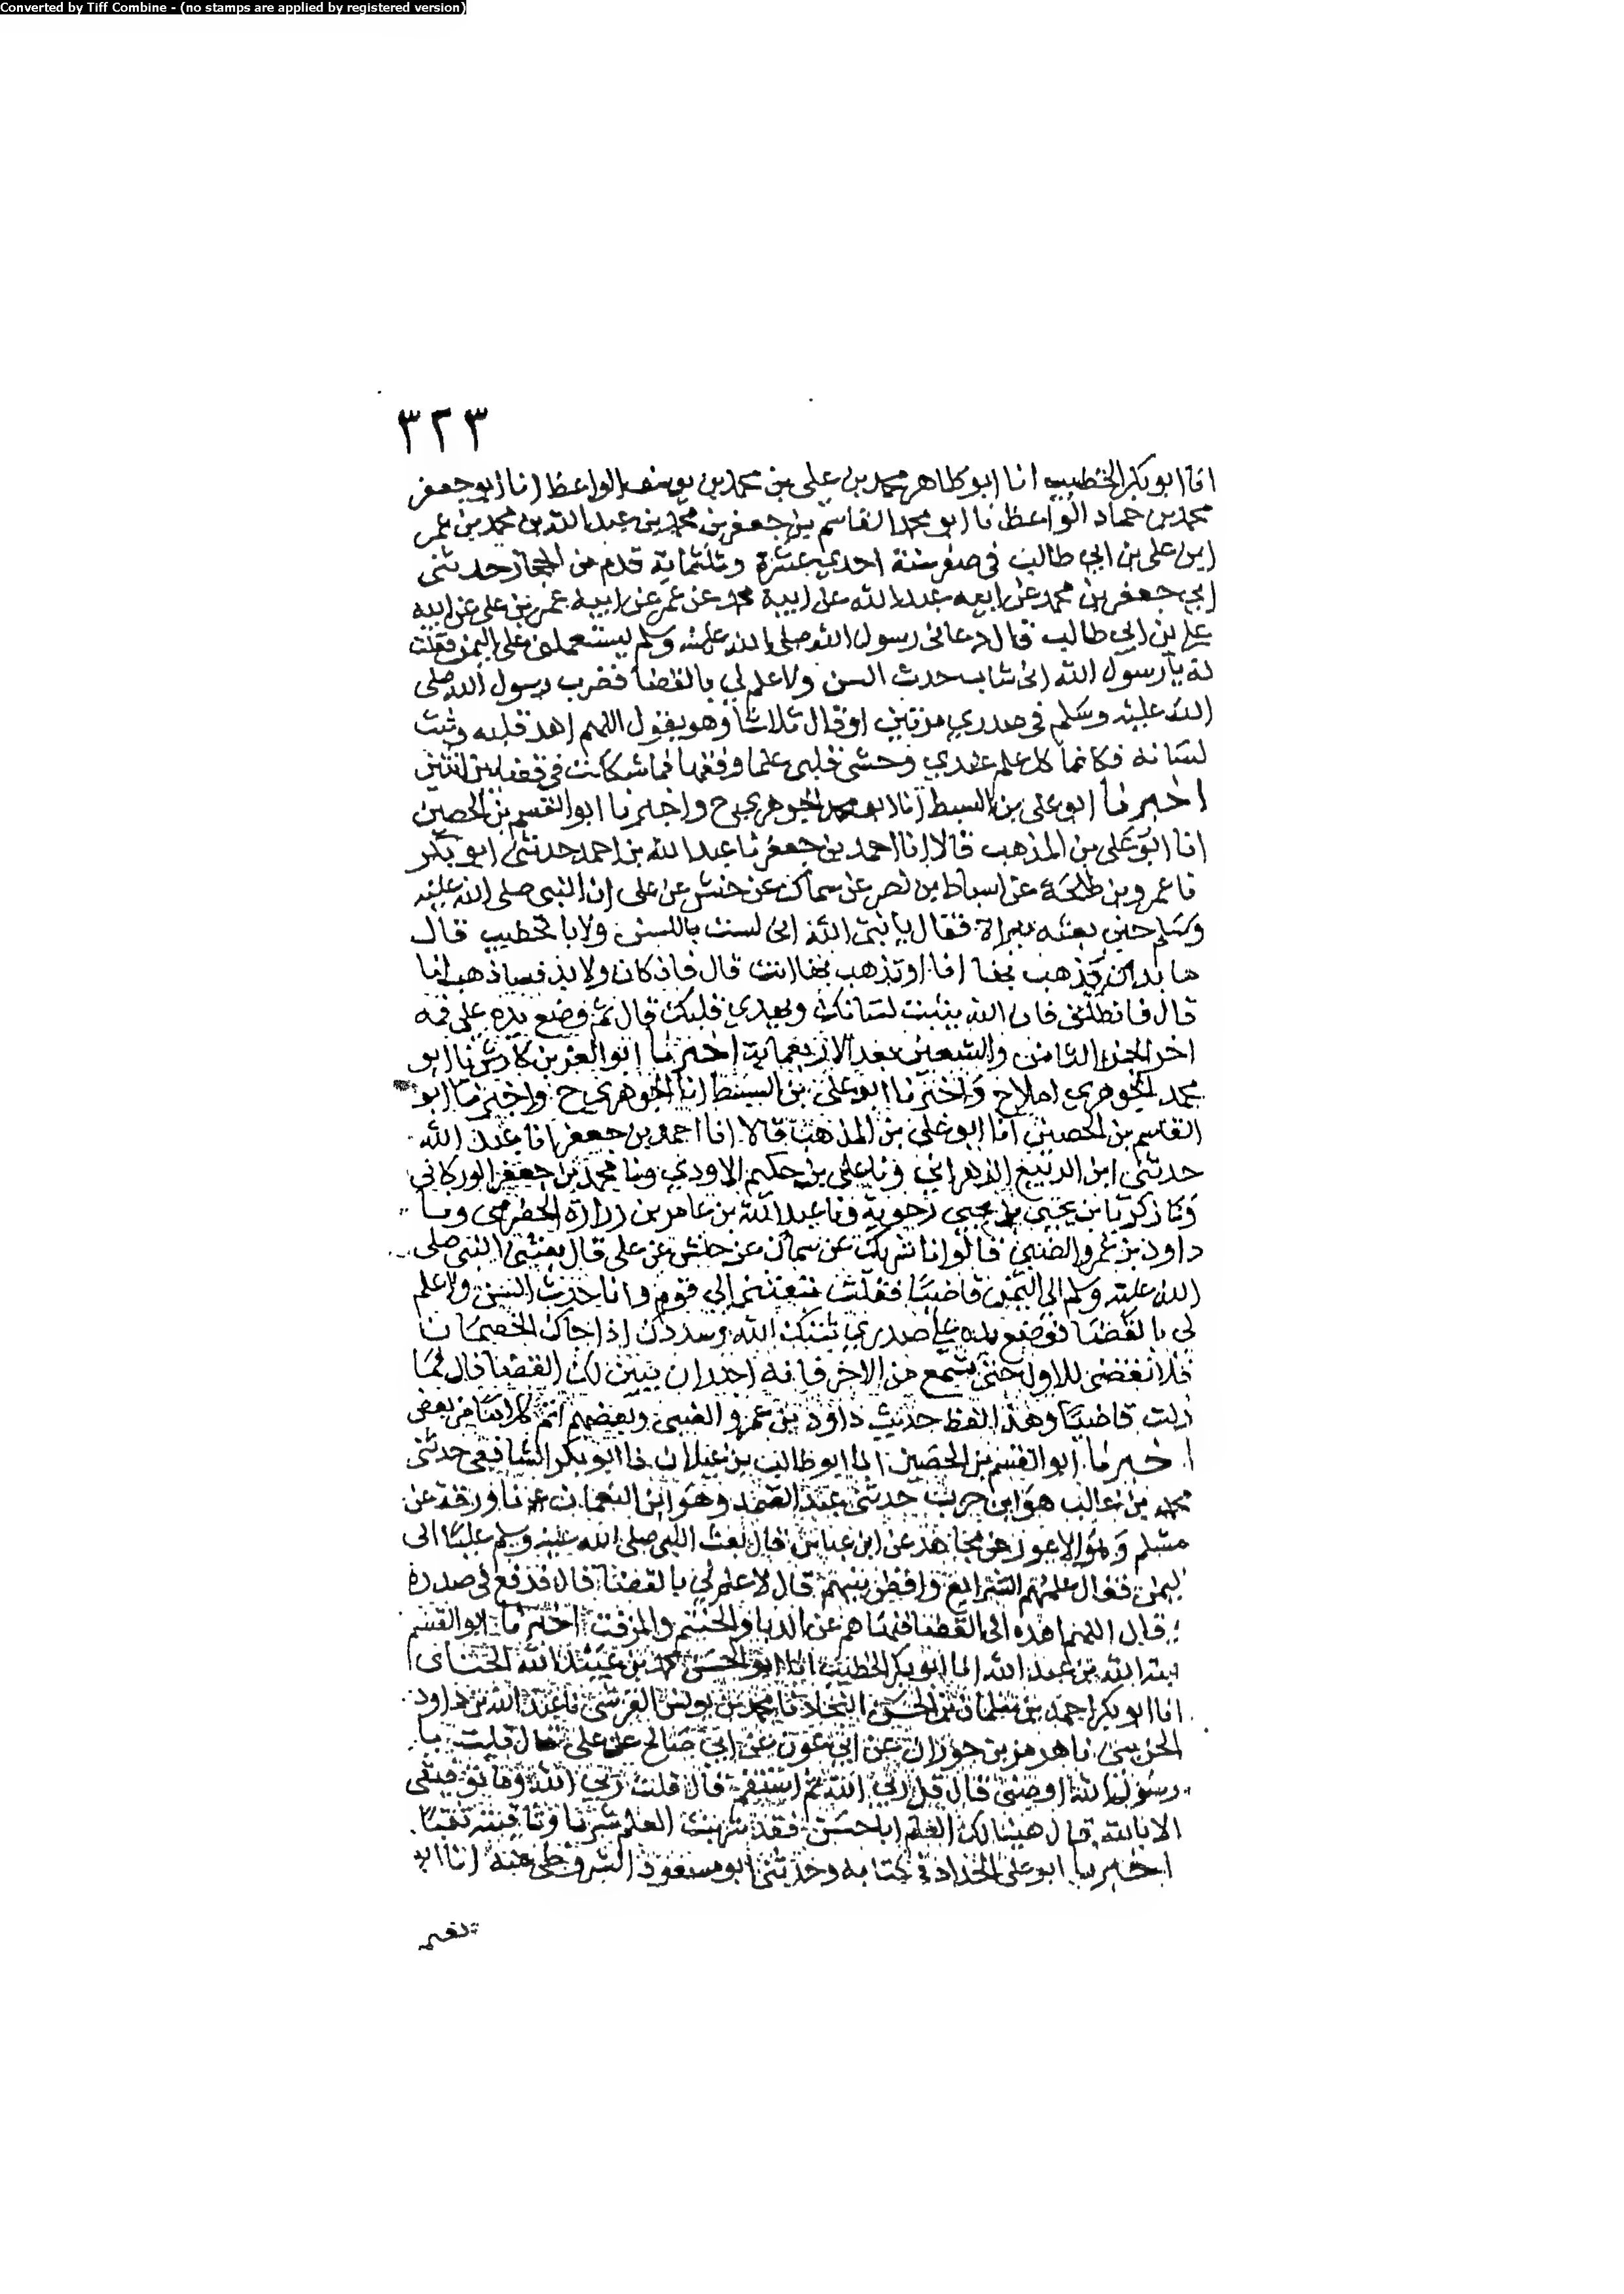 Converted by Tiff Combine - (no stamps are applied by registered version)
٣٢٣
انا ابو بكر الخطيب انا ابو طاهر محمد بن علي بن محمد بن يوسف الواعظ انا ابو جعفر
محمد بن حماد الواعظ نا ابو محمد القاسم بن جعفر بن محمد بن عبد الله بن محمد بن عمر
ابن علي بن ابي طالب في صفر سنة احدي عشرة وثلثماية قدم من الحجاز حدثني
ابي جعفر بن محمد عن ابيه عبد الله عن ابيه محمد عن عمر عن ابيه عمر بن علي عن ابيه
علي بن ابي طالب قال دعاني رسول الله صلى الله عليه وسلم ليستعملني على اليمن فقلت
له يا رسول الله اني شاب حدث السن ولا علم لي بالقضا فضرب رسول الله صلى
الله عليه وسلم في صدري مرتين او قال ثلاثا وهو يقول اللهم اهد قلبه وثبت
لسانه فكانما كل علم عندي وحشى قلبي علما وفقها فما شككت في قضا بين اثنين
اخبرنا ابو علي بن السبط انا ابو محمد الجوهري ح واخبرنا ابو القسم بن الحصين
انا ابو علي بن المذهب قالا انا احمد بن جعفر نا عبد الله بن احمد حدثني ابو بكر
نا عمرو بن طلحة عن اسباط بن نصر عن سماك عن حنش عن علي ان النبي صلى الله عليه
وسلم حين بعثه ببراة فقال يا نبي الله اني لست باللسن ولا بالخطيب قال
ما بد ان يذهب بها انا او تذهب بها انت قال فان كان ولا بد فساذهب انا
قال فانطلق فان الله يثبت لسانك ويهدي قلبك قال ثم وضع يده على فمه
اخر الجزء الثامن والتسعين بعد الاربعماية اخبرنا ابو العز بن كادش نا ابو
محمد الجوهري املا ح واخبرنا ابو علي بن السبط انا الجوهري ح واخبرنا ابو
القاسم بن الحصين انا ابو علي بن المذهب قالا انا احمد بن جعفر نا عبد الله
حدثني ابو الربيع الزهراني ونا علي بن حكيم الاودي ونا محمد بن جعفر الوركاني
ونا زكريا بن يحيى بن يحيى زحويه ونا عبد الله بن عامر بن زرارة الحضرمي ونا
داود بن عمرو الضبي قالوا نا شريك عن سماك عن حنش عن علي قال بعثني النبي صلى
الله عليه وسلم الى اليمن قاضيا فقلت تبعثني الى قوم وانا حدث السن ولا علم
لي بالقضا فوضع يده على صدري ثبتك الله وسددك اذا جاك الخصمان
فلا تقضي للاول حتى تسمع من الاخر فانه اجدر ان يبين لك القضا قال فما
زلت قاضيا وهذا لفظ حديث داود بن عمرو الضبي وبعضهم اتم كلاما من بعض
اخبرنا ابو القسم بن الحصين انا ابو طالب بن غيلان نا ابو بكر الشافعي حدثني
محمد بن غالب هو ابن حرب حدثني عبد الصمد وهو ابن النعمان نا ورقة عن
مسلم وهو الاعور عن مجاهد عن ابن عباس قال بعث النبي صلى الله عليه وسلم عليا الى
اليمن فقال علمهم الشرايع واقض بينهم قال لا علم لي بالقضا قال فدفع في صدره
وقال اللهم اهده الى القضا فنهاهم عن الدبا والحنتم والمزفت اخبرنا ابو القسم
هبة الله بن عبد الله انا ابو بكر الخطيب انا ابو الحسن محمد بن عبيد الله الحنائي
انا ابو بكر احمد بن سلمان بن الحسن النجاد نا محمد بن يونس القرشي نا عبد الله بن داود
الخريبي نا هرمز بن حوران عن ابي عون عن ابي صالح عن علي قال قلت يا
رسول الله اوصني قال قل ربي الله ثم استقم قال قلت ربي الله وما توفيقي
الا بالله قال هنيا لك العلم ابا حسن فقد شربت العلم شربا وثاقبته ثقبا
اخبرنا ابو علي الحداد في كتابه وحدثني ابو مسعود الشروطي عنه انا ابو
نعيم